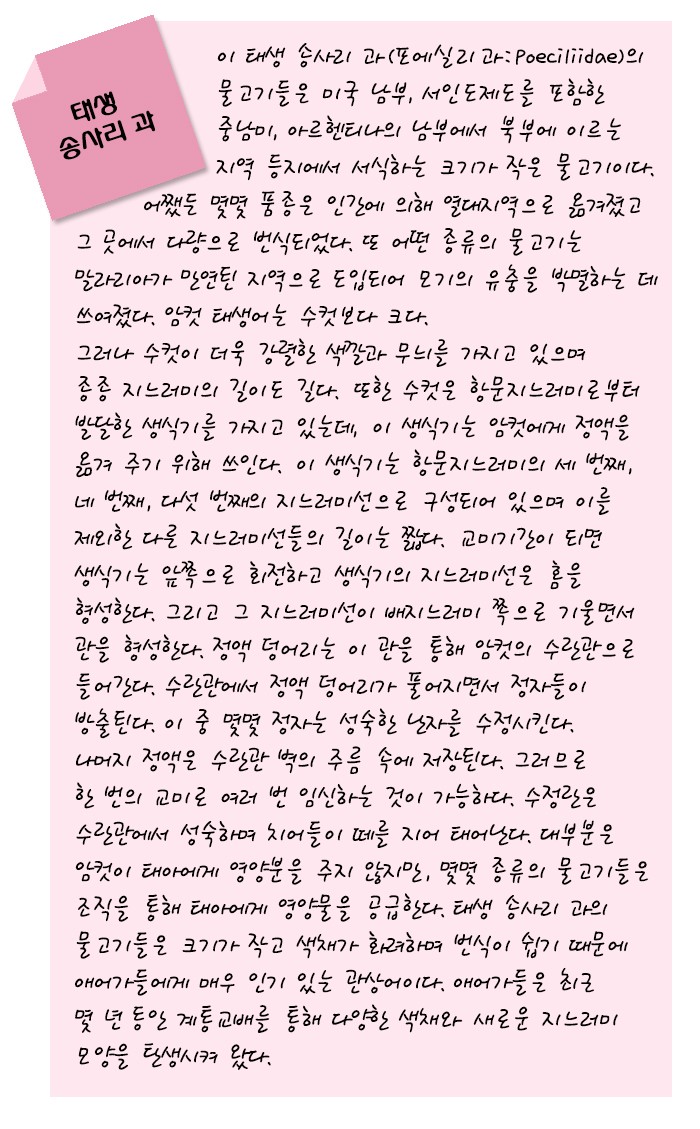 태생
송사리 과
이 태생 송사리 과(포에실리과:Poeciliidae)의
물고기들은 미국 남부, 서인도제도를 포함한
중남미, 아르헨티나의 남부에서 북부에 이르는
지역 등지에서 서식하는 크기가 작은 물고기이다.
어쨌든 몇몇 품종은 인간에 의해 열대지역으로 옮겨졌고
그 곳에서 다량으로 번식되었다. 또 어떤 종류의 물고기는
말라리아가 만연된 지역으로 도입되어 모기의 유충을 박멸하는 데
쓰여졌다. 암컷 태생어는 수컷보다 크다.
그러나 수컷이 더욱 강렬한 색깔과 무늬를 가지고 있으며
종종 지느러미의 길이도 길다. 또한 수컷은 항문지느러미로부터
발달한 생식기를 가지고 있는데, 이 생식기는 암컷에게 정액을
옮겨 주기 위해 쓰인다. 이 생식기는 항문지느러미의 세 번째,
네 번째, 다섯 번째의 지느러미선으로 구성되어 있으며 이를
제외한 다른 지느러미선들의 길이는 짧다. 교미기간이 되면
생식기는 앞쪽으로 회전하고 생식기의 지느러미선은 홈을
형성한다. 그리고 그 지느러미선이 배지느러미 쪽으로 기울면서
관을 형성한다. 정액 덩어리는 이 관을 통해 암컷의 수란관으로
들어간다. 수란관에서 정액 덩어리가 풀어지면서 정자들이
방출된다. 이 중 몇몇 정자는 성숙한 난자를 수정시킨다.
나머지 정액은 수란관 벽의 주름 속에 저장된다. 그러므로
한 번의 교미로 여러 번 임신하는 것이 가능하다. 수정란은
수란관에서 성숙하며 치어들이 떼를 지어 태어난다. 대부분은
암컷이 태아에게 영양분을 주지 않지만, 몇몇 종류의 물고기들은
조직을 통해 태아에게 영양물을 공급한다. 태생 송사리 과의
물고기들은 크기가 작고 색채가 화려하며 번식이 쉽기 때문에
애어가들에게 매우 인기 있는 관상어이다. 애어가들은 최근
몇 년 동안 계통교배를 통해 다양한 색채와 새로운 지느러미
모양을 탄생시켜 왔다.